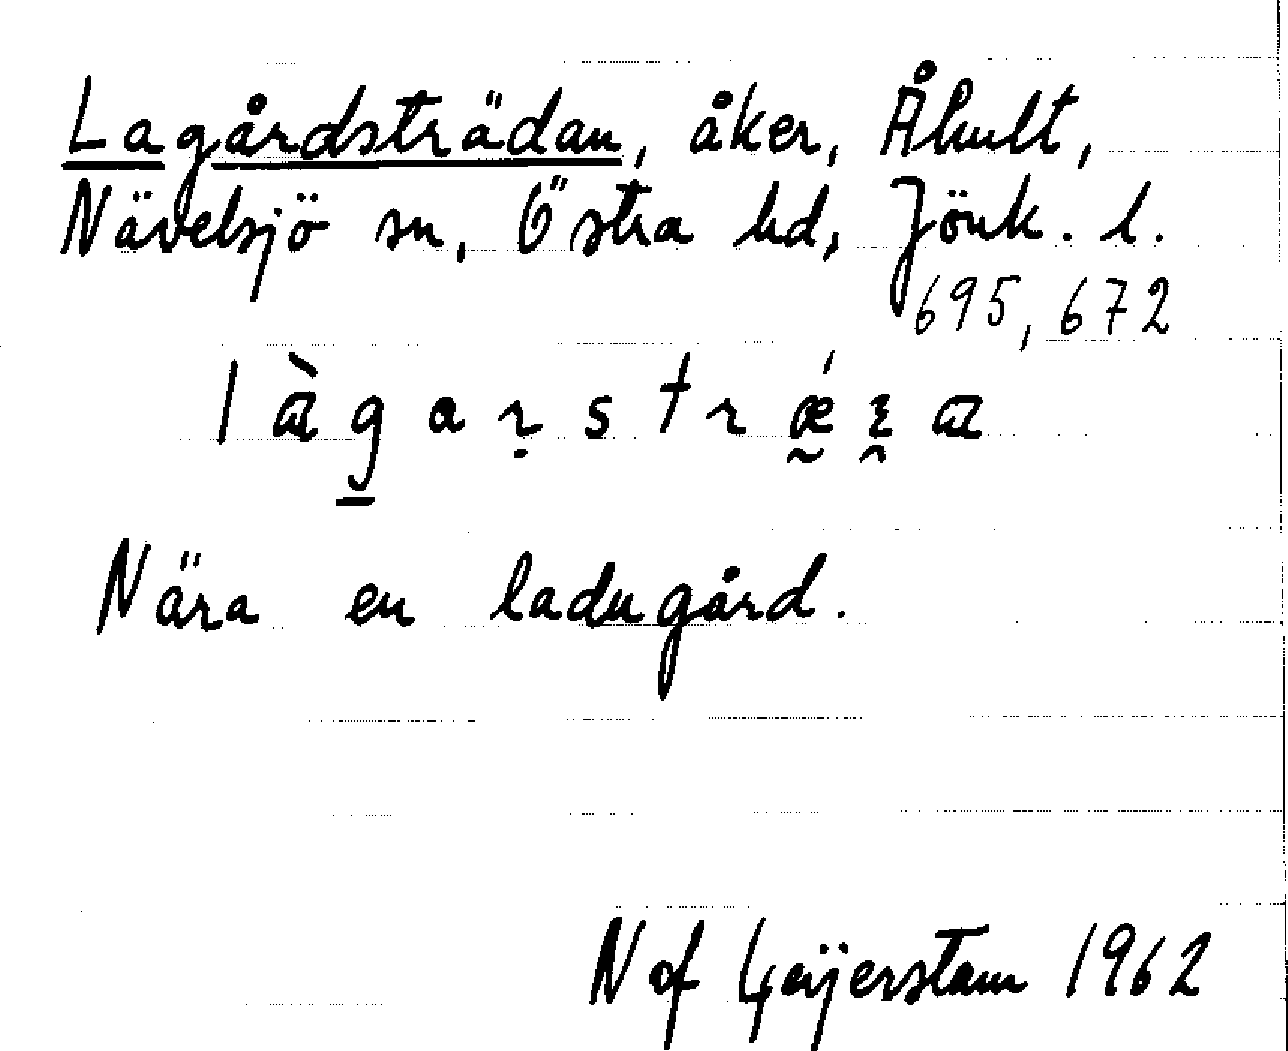 Lagårdsträdan, åker, Åhult,
Nävelsjö sn, Östra hd, Jönk. l.
695, 672
Nära en ladugård.
N af Geijerstam 1962